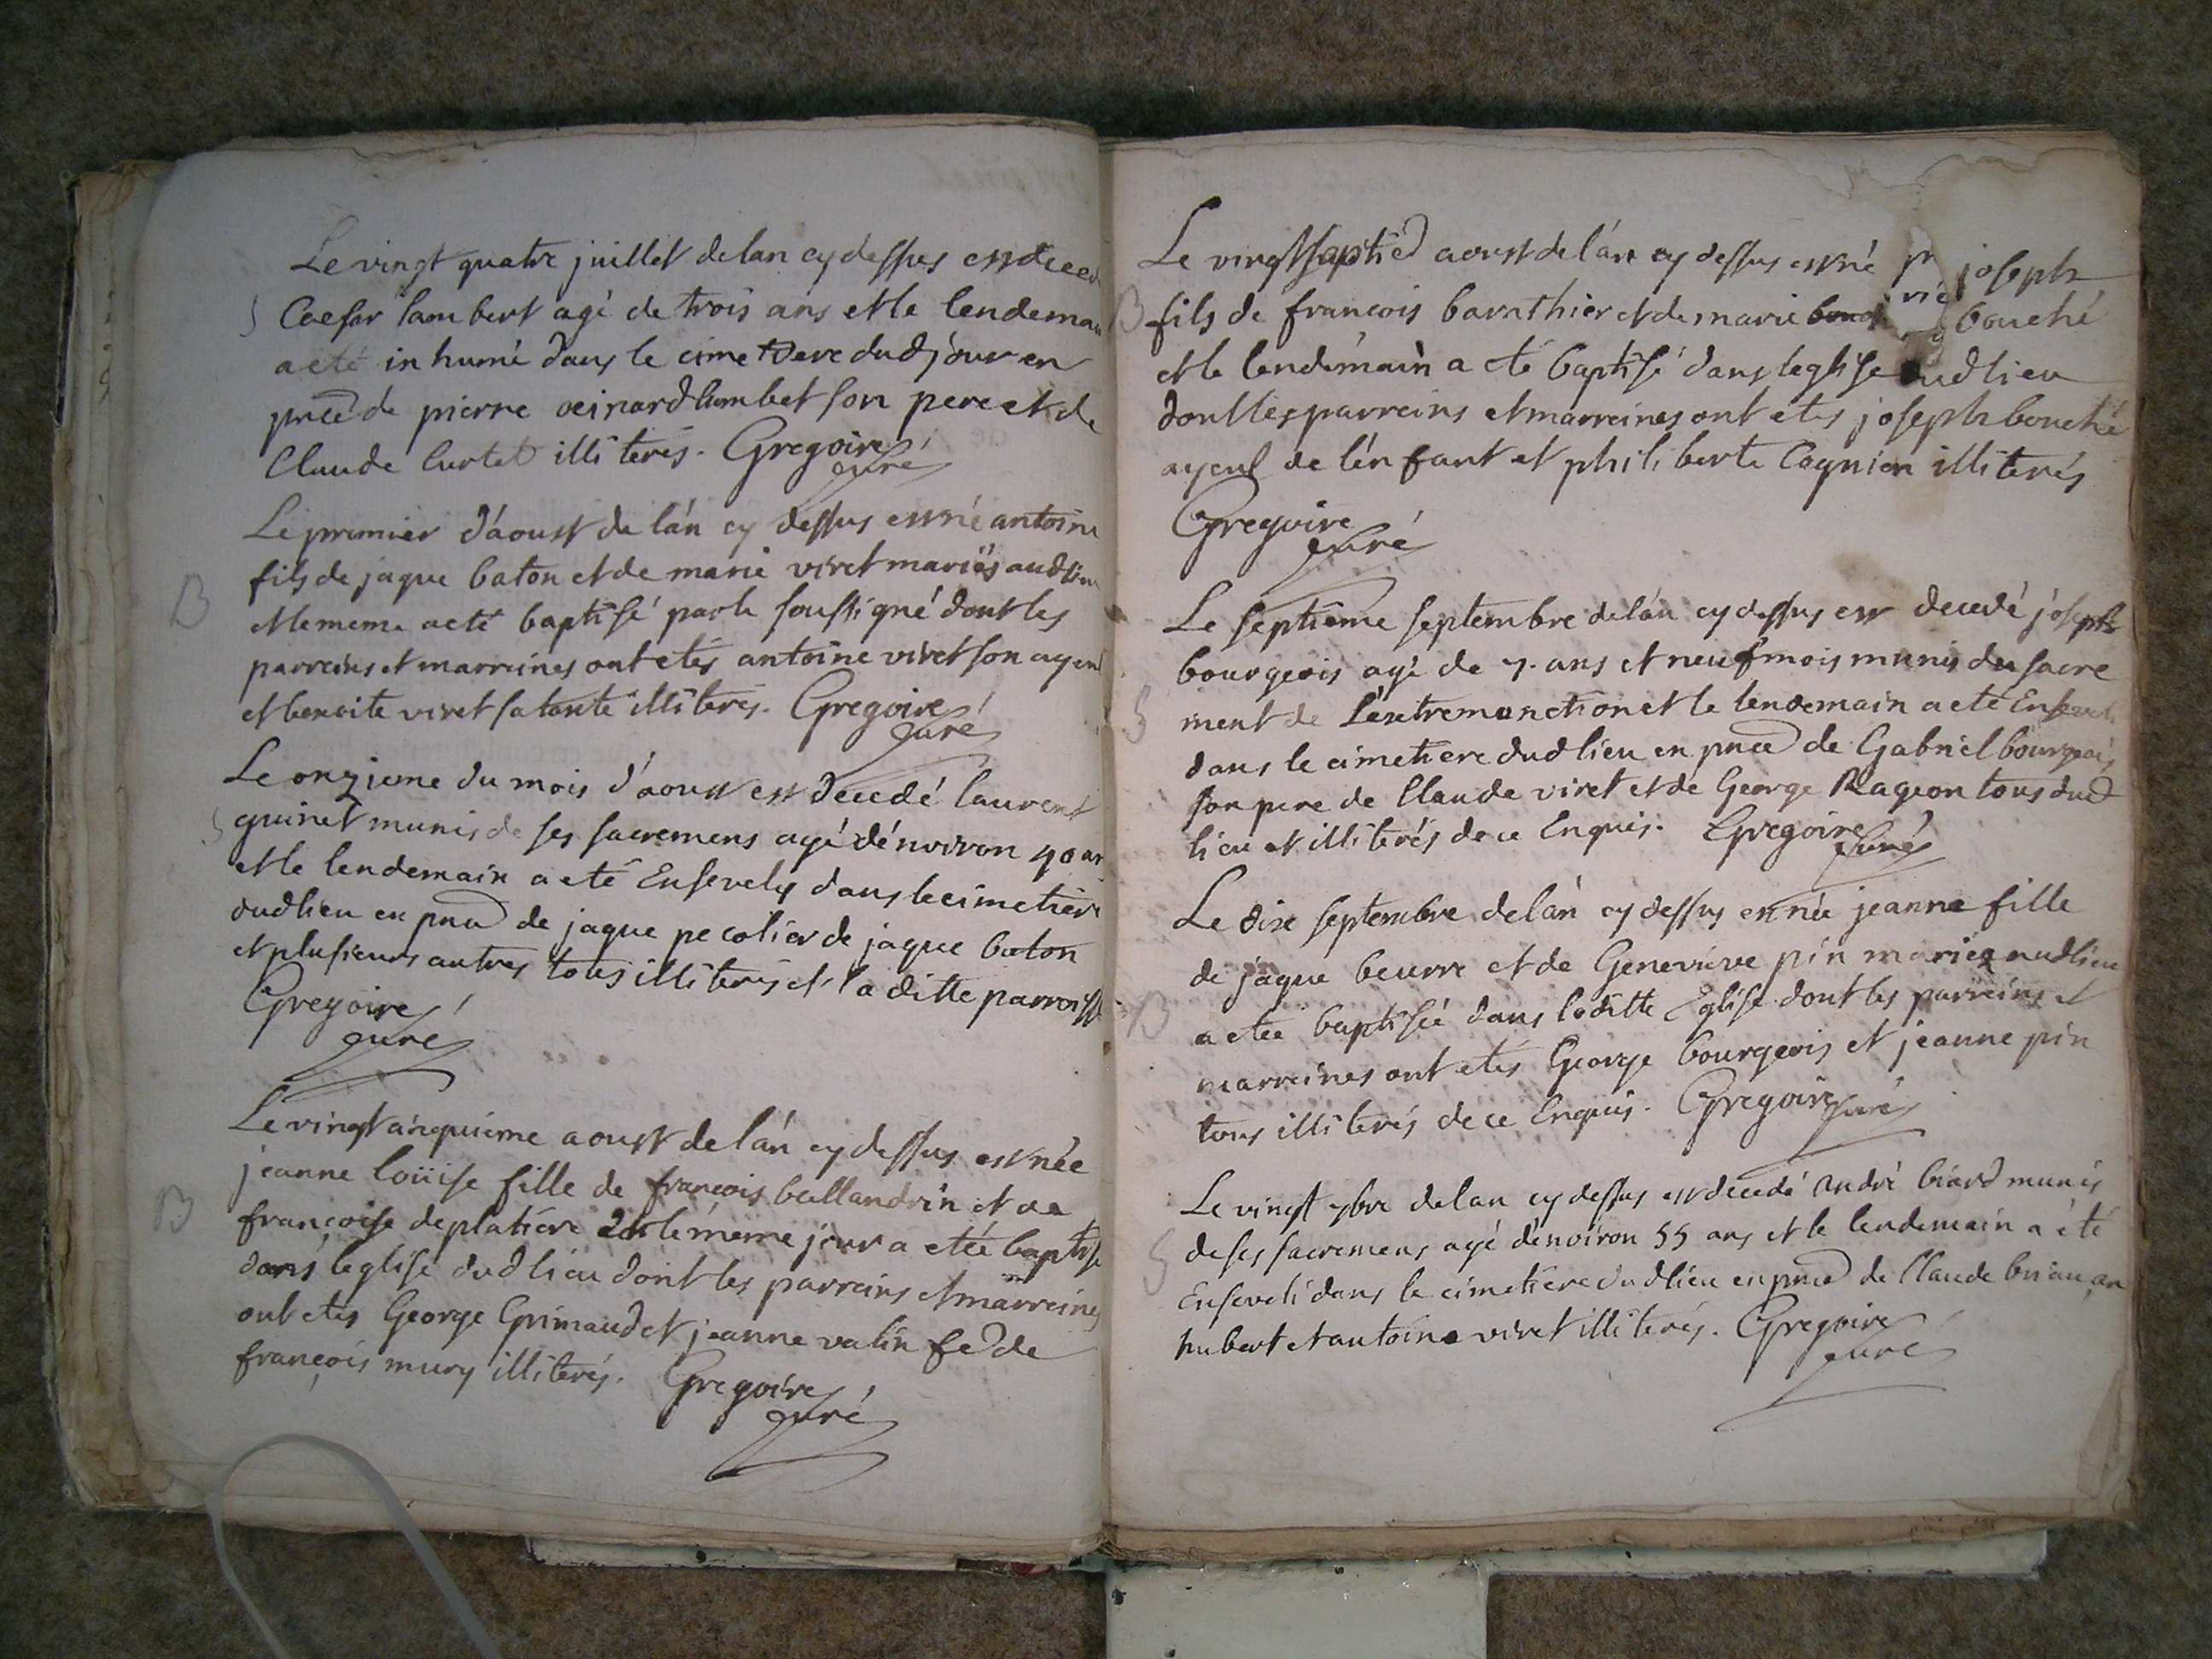 Le vingt quatre juillet de lan cy dessus est deced
S Caesar lambert agé de trois ans et le lendemain
a eté inhumé dans le cimetiere dud jour en
pnce de pierre lambet son pere et de
Claude Curtet illiterés. Gregoire
curé
Le premier d'aoust de lán cy dessus est né antoine
fils de jaque baton et de marie viret mariés aud lieu
B et le meme a eté baptisé par le soussigné dont les
parreins et marreines ont etés antoine viret son ayeul
et benoite viret sa tante illiterés. Gregoire
curé
Le onzieme du mois d'aoust est decedé laurent
S guinet munis de ses sacremens agé dénviron 40 an
et le lendemain a eté Ensevely dans le cimetiere
dud lieu en pnce de jaque pecolier de jaque baton
et plusieurs autres tous illiterés de la ditte parroisse
Gregoire
curé
Le vingt cinquieme aoust de lán cy dessus est née
jeanne loüise fille de françois ballandrin et de
B françoise deplatiére et le méme jour a etée baptise
dans leglise dud lieu dont les parreins et marreines
ont etés George Grimaud et jeanne valin fe de
françois mury illiterés. Gregoire
curé
Le vingt septie aoust de lán cy dessus est né joseph
B fils de francois barathier et de marie bouché
et le lendemain a eté baptisé dans leglise dud lieu
dont les parreins et marreines ont etés joseph bouché
ayeul de lénfant et philiberte Cagnion illiterés
Gregoire
curé
Le septiéme septembre de lán cy dessus est decedé joseph
bourgeois agé de 7. ans et neuf mois munis du sacre
S ment de Léxtremonction et le lendemain a eté Enseveli
dans le cimetiere dud lieu en pnce de Gabriel bourgeois
son pere de Claude viret et de George Rageon tous dud
lieu et illiterés de ce Enquis. Gregoire
curé
Le dix septembre de lán cy dessus est née jeanne fille
de jaque beurre et de Geneviéve pin mariés aud lieu
B a etée baptisée dans laditte Eglise dont les parreins et
marreines ont etés George bourgeois et jeanne pin
tous illiterés de ce Enquis. Gregoire curé
Le vingt 7bre de lan cy dessus est decedé André biard munis
S de ses sacremens agé dénviron 55 ans et le lendemain a été
Enseveli dans le cimetiére dud lieu en pnce de Claude
hubert et antoine viret illiterés. Gregoire
curé